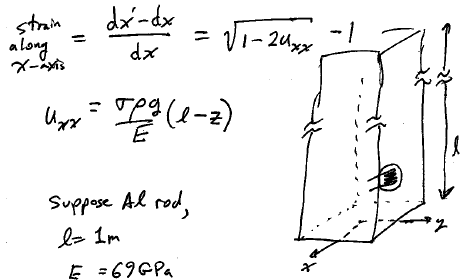 strain along x-axis = dx'-dx / dx = √1-2uxx -1
uxx = σρg/E (l-z)
Suppose Al rod,
l= 1m
E = 69GPa
l
x
y